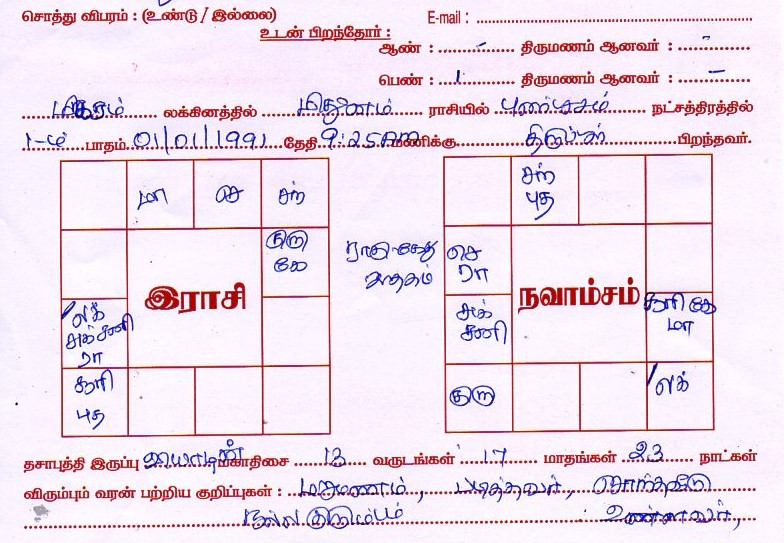 சொத்து விபரம் : (உண்டு / இல்லை) E-mail :
உடன் பிறந்தோர் :
ஆண் : - திருமணம் ஆனவர் : -
பெண் : 1 திருமணம் ஆனவர் : -
மகரம் லக்கினத்தில் மிதுனம் ராசியில் புனர்பூசம் நட்சத்திரத்தில்
1-ம் பாதம் 01/01/1991 தேதி 9:25 AM மணிக்கு பிறந்தவர்.
மா செ சந்
குரு
கே
இராசி
லக்
சுக் சனி
ரா
சூரி
புத
ராகு கேது
ஜாதகம்
சந்
புத
செ
ரா
நவாம்சம்
சுக்
சனி
சூரி கே
மா
குரு
லக்
தசாபுத்தி இருப்பு மகாதிசை 13 வருடங்கள் 17 மாதங்கள் 23 நாட்கள்
விரும்பும் வரன் பற்றிய குறிப்புகள் : மறுமணம், படித்தவர், சொந்தவீடு
நல்ல குடும்பம் உள்ளவர்,